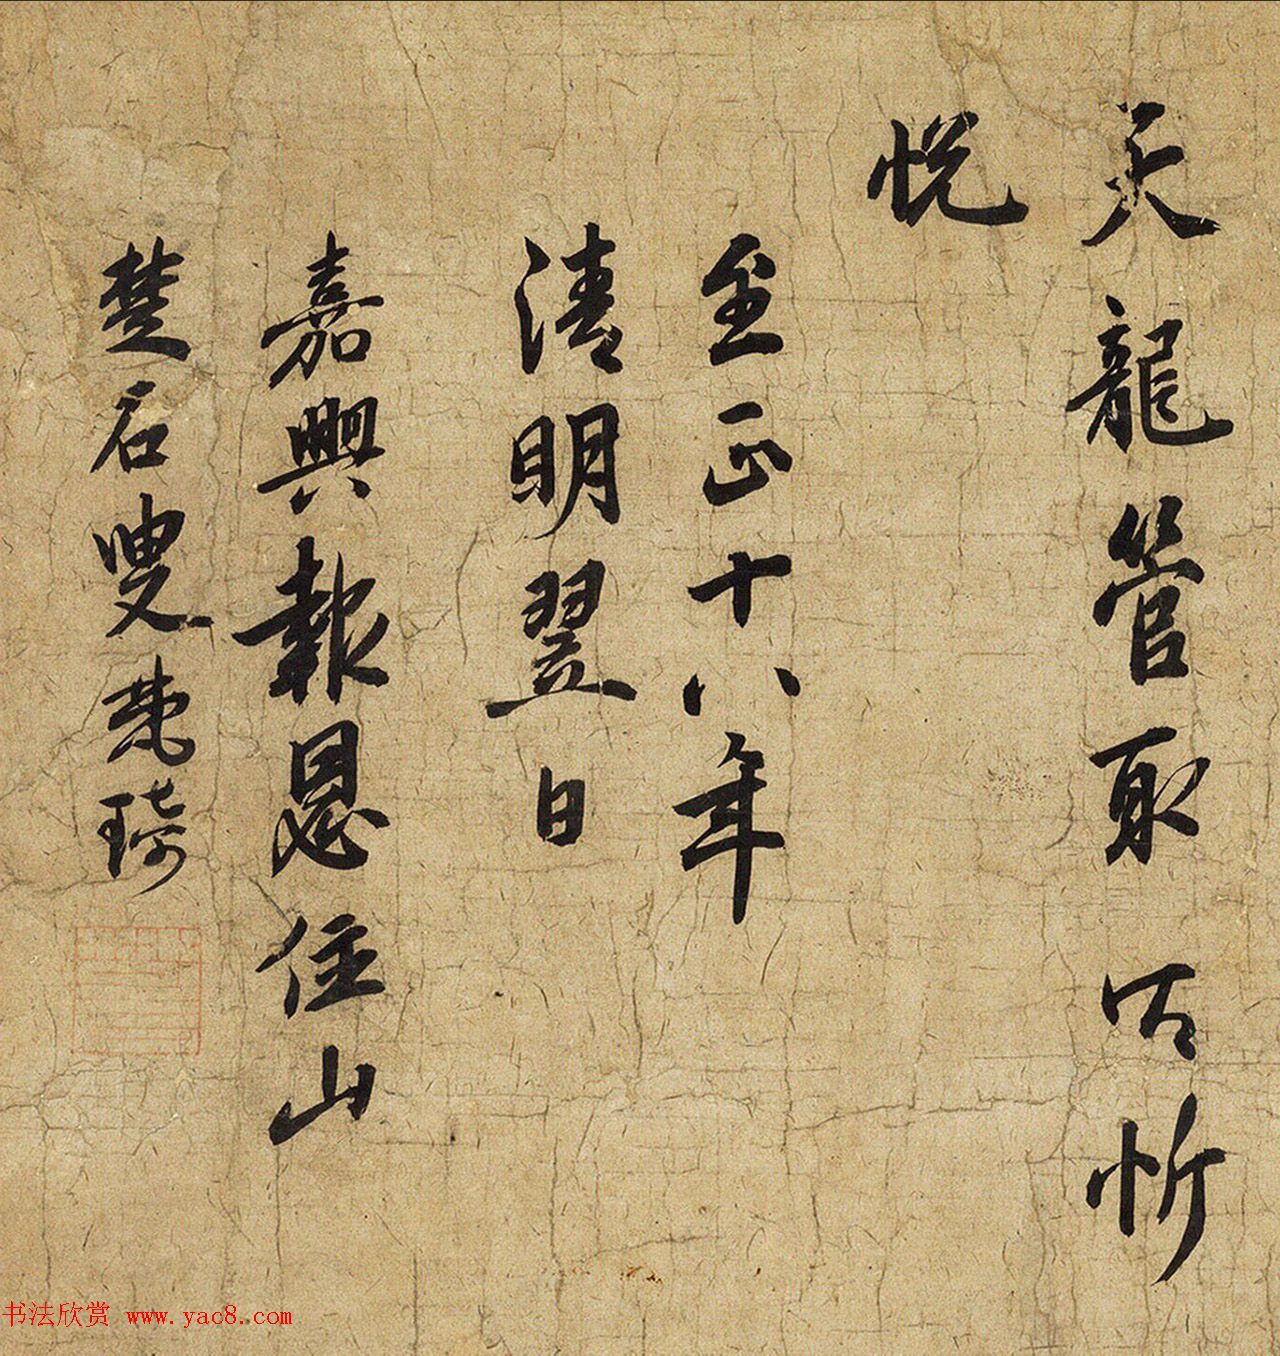 天龍管取合忻
悅
至正十八年
清明翌日
嘉興報恩住山
楚石叟梵琦
书法欣赏 www.yac8.com